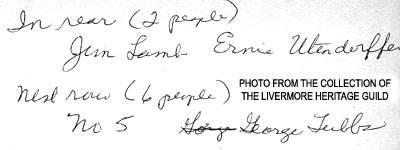 In rear (2 people)
Jim Lamb Ernie Utendorffe
Next row (6 people)
PHOTO FROM THE COLLECTION OF
THE LIVERMORE HERITAGE GUILD
No 5 George Tubbs